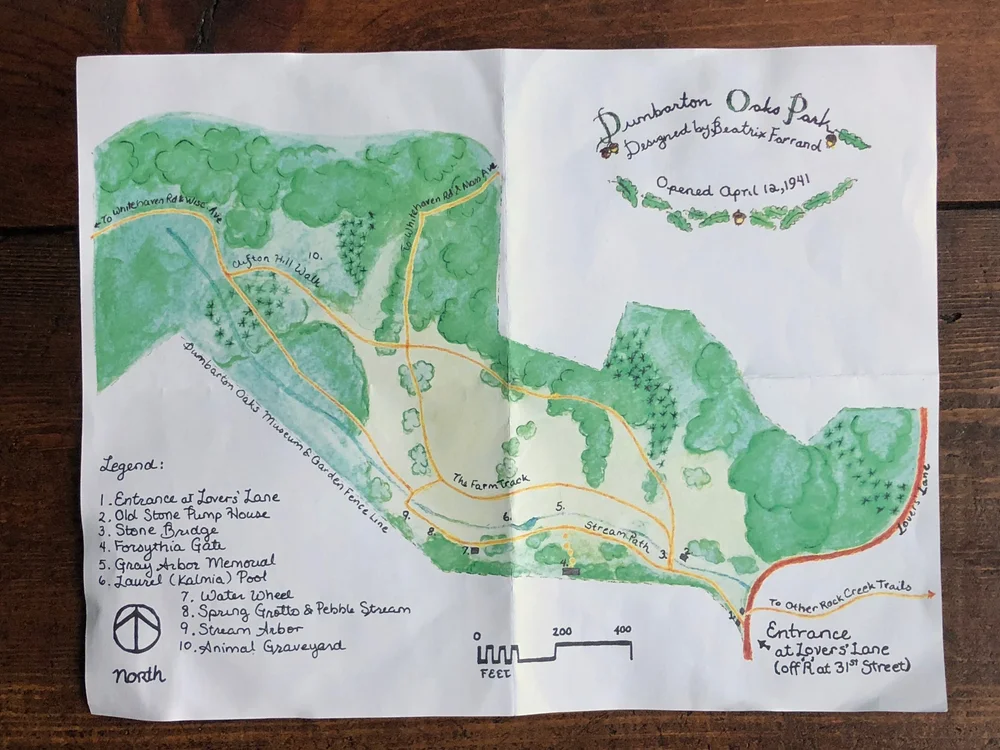 Dumbarton Oaks Park
Designed by Beatrix Farrand
Opened April 12, 1941
To Whitehaven Rd & Wisc Ave
To Whitehaven Rd & Mass Ave
Clifton Hill Walk
10.
Dumbarton Oaks Museum & Garden Fence Line
The Farm Track
5.
6.
9.
8.
7.
4.
Stream Path
3.
2.
1.
Lovers' Lane
To Other Rock Creek Trails
Entrance
at Lovers' Lane
(off R at 31st Street)
Legend:
1. Entrance at Lovers' Lane
2. Old Stone Pump House
3. Stone Bridge
4. Forsythia Gate
5. Gray Arbor Memorial
6. Laurel (Kalmia) Pool
7. Water Wheel
8. Spring Grotto & Pebble Stream
9. Stream Arbor
10. Animal Graveyard
North
0 200 400
FEET